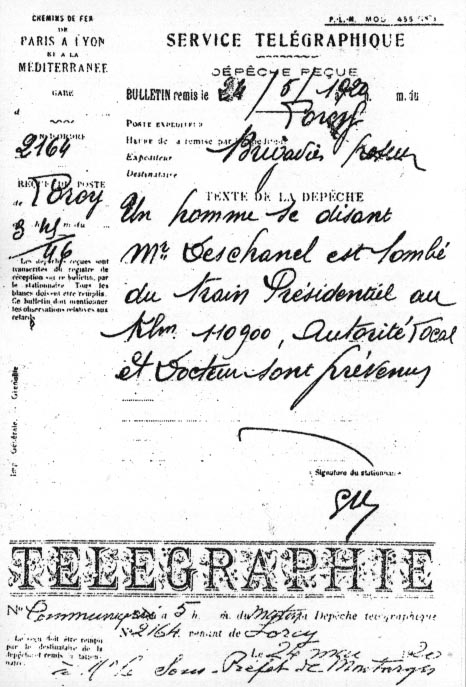 CHEMINS DE FER
DE
PARIS A LYON
ET A LA
MÉDITERRANÉE
P.L.M. MOD 455
SERVICE TÉLÉGRAPHIQUE
DÉPÊCHE REÇUE
GARE
d
BULLETIN remis le 24/5/1920 à m. du
POSTE EXPÉDITEUR Torcy
2164
Expéditeur Brigadier
Destinataire
REÇUE DU POSTE
de Toroy
3 h 45 m du
46
TEXTE DE LA DÉPÊCHE
Un homme se disant
Mr Deschanel est tombé
du train Présidentiel au
Klm. 110900, Autorité Local
et Docteur sont prévenus
Les dépêches reçues sont
transcrites du registre de
réception sur ce bulletin, par
le stationnaire Tous les
blancs doivent être remplis.
Ce bulletin doit mentionner
les observations relatives aux
retards
Imp. Générale. — Grenoble
Signature du stationnaire
TELEGRAPHIE
No Communiqué à 5 h. m. du matin Dépêche télégraphique
No 2164 venant de Torcy
Le reçu doit être rempli
par le destinataire de la
dépêche et remis à
Le 24 mai 1920
à Mr le Sous-Préfet de Montargis